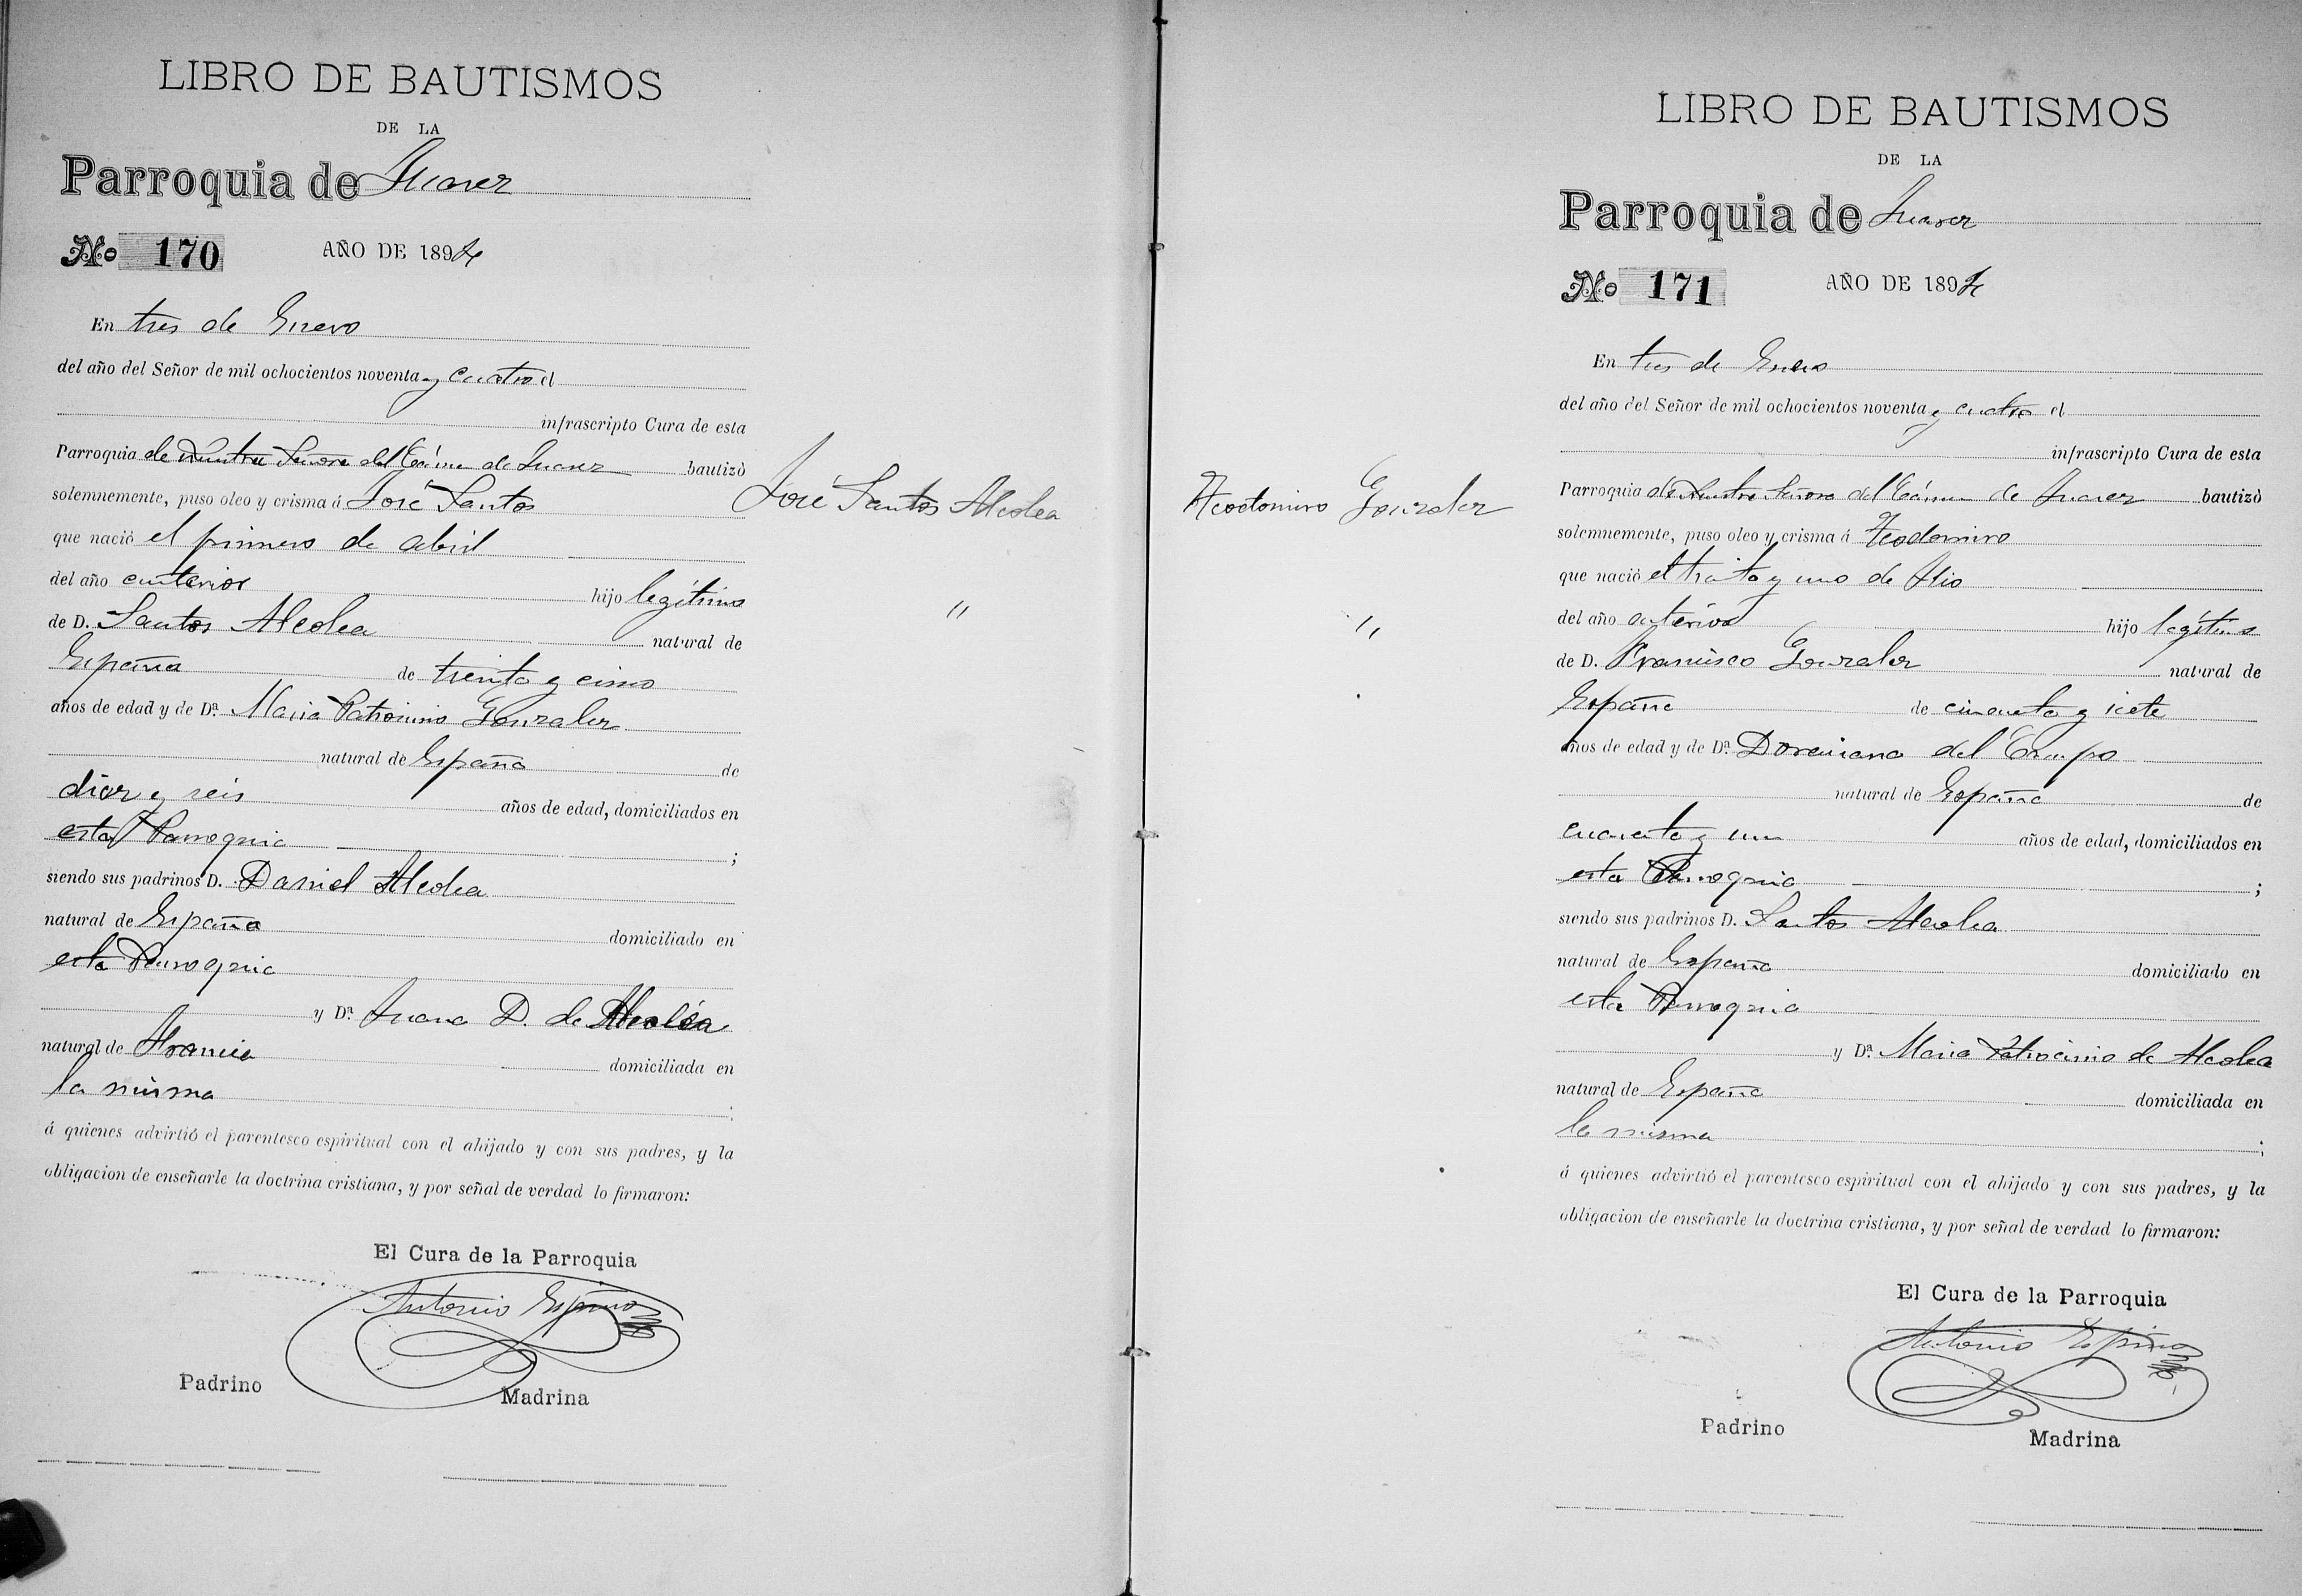 LIBRO DE BAUTISMOS
DE LA
Parroquia de Juarez
No 170 AÑO DE 1894
En tres de Enero
del año del Señor de mil ochocientos noventa y cuatro el
infrascripto Cura de esta
Parroquia de Nuestra Señora del Cármen de Juarez bautizò
solemnemente, puso oleo y crisma á José Santos
que nació el primero de abril
del año anterior hijo legítimo
de D. Santos Alcolea natural de
España de treinta y cinco
años de edad y de Dª Maria Patrocinio Gonzalez
natural de España de
diez y seis años de edad, domiciliados en
esta Parroquia ;
siendo sus padrinos D. Daniel Alcolea
natural de España domiciliado en
esta Parroquia
y Dª Juana D. de Alcoléa
natural de Francia domiciliada en
la misma ;
á quienes advirtió el parentesco espiritual con el ahijado y con sus padres, y la
obligacion de enseñarle la doctrina cristiana, y por señal de verdad lo firmaron:
El Cura de la Parroquia
Antonio Espinosa
Padrino Madrina
José Santos Alcolea
"
Teodomiro Gonzalez
"
LIBRO DE BAUTISMOS
DE LA
Parroquia de Juarez
No 171 AÑO DE 1894
En tres de Enero
del año del Señor de mil ochocientos noventa y cuatro el
infrascripto Cura de esta
Parroquia de Nuestra Señora del Cármen de Juarez bautizò
solemnemente, puso oleo y crisma á Teodomiro
que nació el treinta y uno de
del año anterior hijo legítimo
de D. Francisco Gonzalez natural de
España de cincuenta y siete
años de edad y de Dª del Campo
natural de España de
cuarenta y un años de edad, domiciliados en
esta Parroquia ;
siendo sus padrinos D. Santos Alcolea
natural de España domiciliado en
esta Parroquia
y Dª Maria Patrocinio de Alcolea
natural de España domiciliada en
la misma ;
á quienes advirtió el parentesco espiritual con el ahijado y con sus padres, y la
obligacion de enseñarle la doctrina cristiana, y por señal de verdad lo firmaron:
El Cura de la Parroquia
Antonio Espinosa
Padrino Madrina